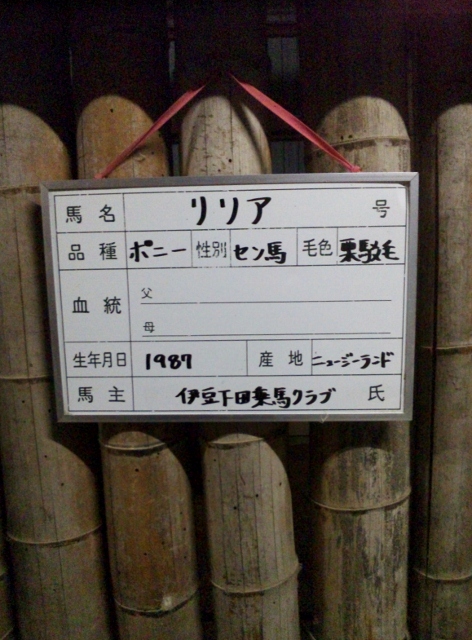 馬名 リリア 号
品種 ポニー 性別 セン馬 毛色 栗駁毛
血統 父
母
生年月日 1987 産地 ニュージーランド
馬主 伊豆下田乗馬クラブ 氏